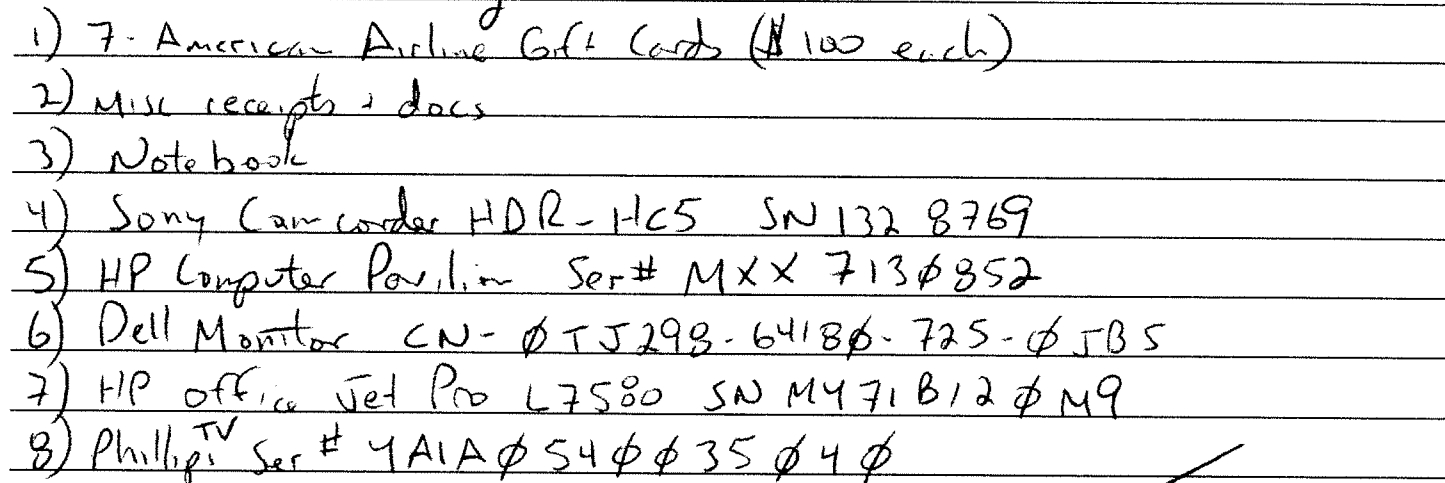 1) 7 - American Airline Gift Cards ($100 each)
2) Misc receipts + docs
3) Notebook
4) Sony Camcorder HDR-HC5 SN 1328769
5) HP Computer Pavilion Ser# MXX 713Ø852
6) Dell Monitor CN-ØTJ298-6418Ø-725-ØJB5
7) HP Office Jet Pro L7580 SN MY71B12ØM9
8) Phillips TV Ser # YA1AØ54ØØ35Ø4Ø